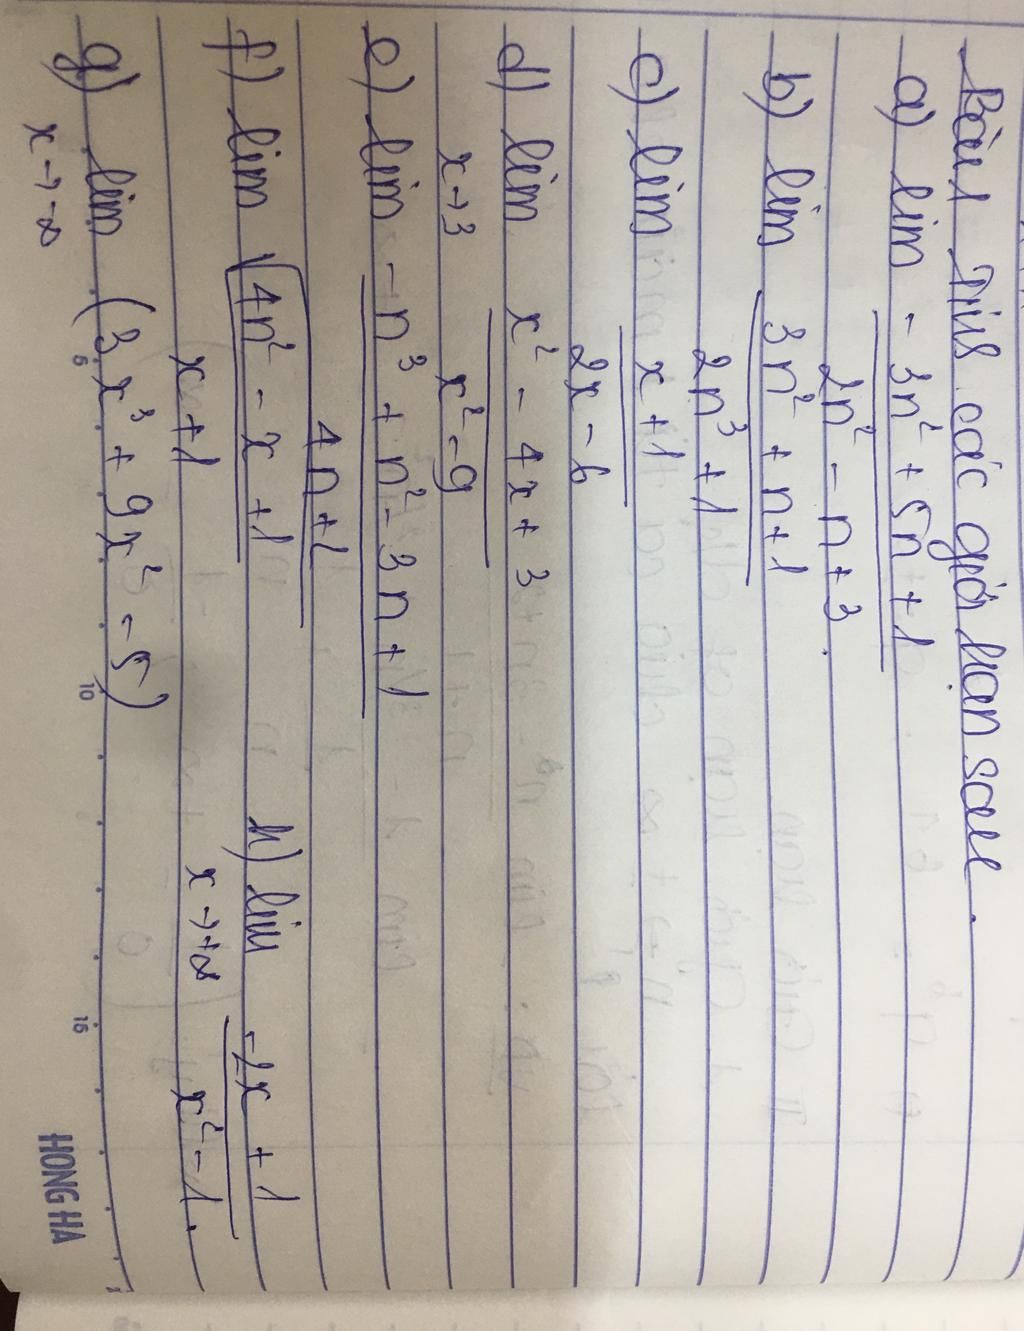 Bài 1 Tìm các giới hạn sau.
a) lim -3n² + 5n + 1
2n² - n + 3
b) lim 3n² + n + 1
2n³ + 1
c) lim x + 1
2x - 6
d) lim x² - 4x + 3
x→3 x² - 9
e) lim -n³ + n² - 3n + 1
4n + 2
f) lim √4n² - x + 1 h) lim -2x + 1
x + 1 x→+∞ x² - 1.
g) lim (3x³ + 9x² - 5)
x→-∞
5 10 15
HONG HA